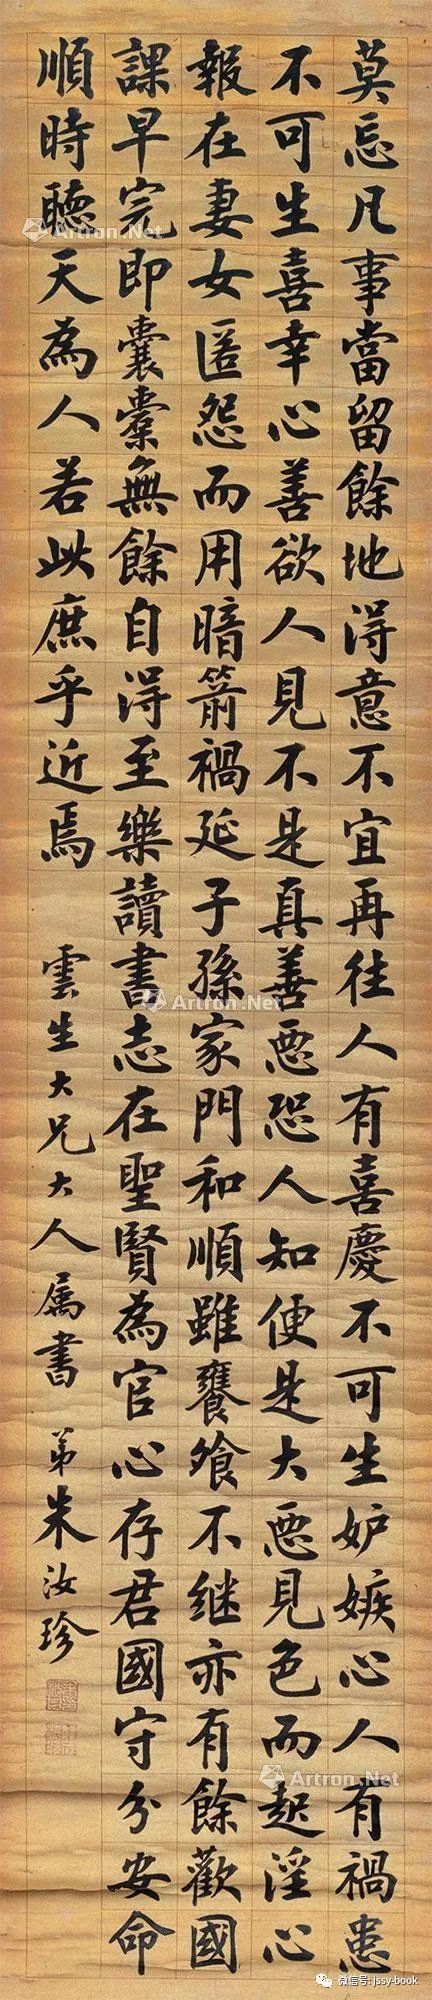 莫忘凡事當留餘地得意不宜再往人有喜慶不可生妒嫉心人有禍患
不可生喜幸心善欲人見不是真善惡恐人知便是大惡見色而起淫心
報在妻女匿怨而用暗箭禍延子孫家門和順雖饔飧不继亦有餘歡國
課早完即囊橐無餘自淂至樂讀書志在聖賢為官心存君國守分安命
順時聽天為人若此庶乎近焉
雲生大兄大人属書 弟朱汝珍
Artron.Net
Artron.Net
Artron.Net
Artron.Net
微信号: jssy-book